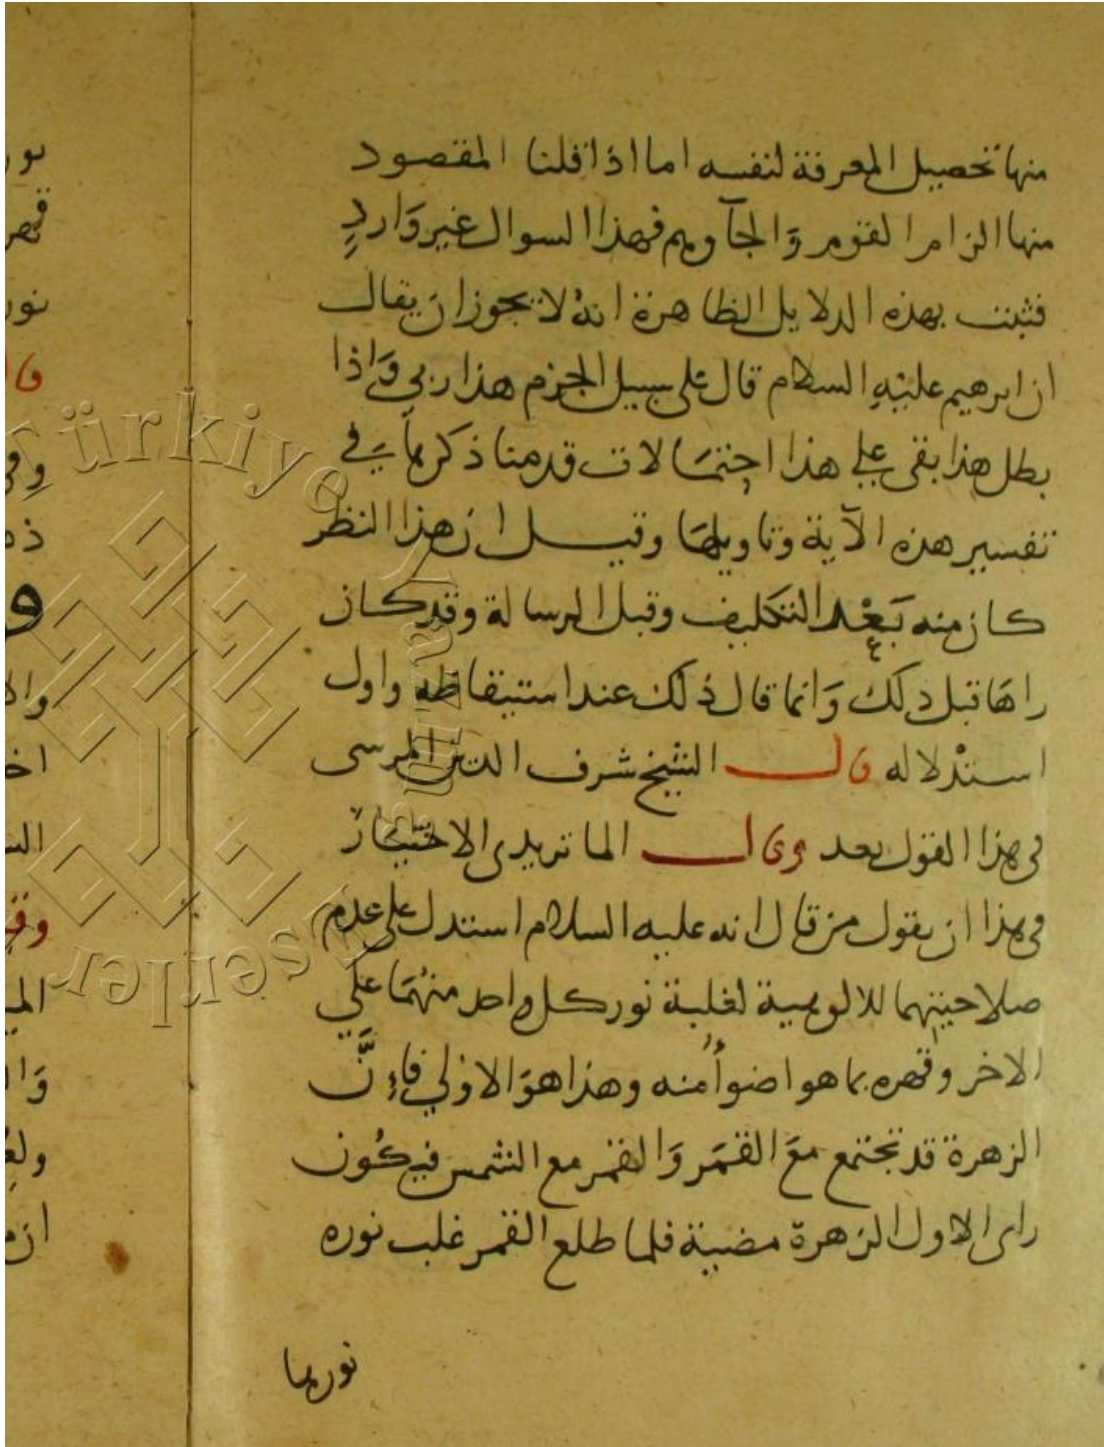 منها تحصيل المعرفة لنفسه اما اذا قلنا المقصود
منها الزام القوم وَالجآوهم فهذا السوال غير وَاردٍ
فثبت بهذه الدلايل الظاهرة انهُ لا يجوز ان يقال
ان ابرهيم عليْهِ السلام قال على سبيل الجزم هذا ربي وَاذا
بطل هذا بقى على هذا احتمَالات قدمنا ذكرهَا في
تفسير هذه الآية وتاويلهَا وقيل ان هذا النظر
كان منه بَعْد التكليف وقبل الرسالة وقد كان
راهَا قبل ذلك وَانما قال ذلك عند استيقاظه واول
استدْلاله قال الشيخ شرف الدين المرسى
في هذا القول بعد وقال الماتريدى الاختيَار
في هذا ان يقول من قال انه عليه السلام استدل على عدم
صلاحيتهما للالوهية لغلبة نور كل واحد منهُمَا علَي
الاخر وقهره بما هو اضوأُ منه وهذا هوَ الاوْلي فاِنَّ
الزهرة قد تجتمع معَ القمَر وَالقمر مع الشمس فيكُون
راى الاول الزهرة مضيية فلما طلع القمر غلب نوره
نورها
نور
نور
قا
ذ
و
وال
اخ
الس
الم
وَا
ان
Türkiye
Yazma
Eserler